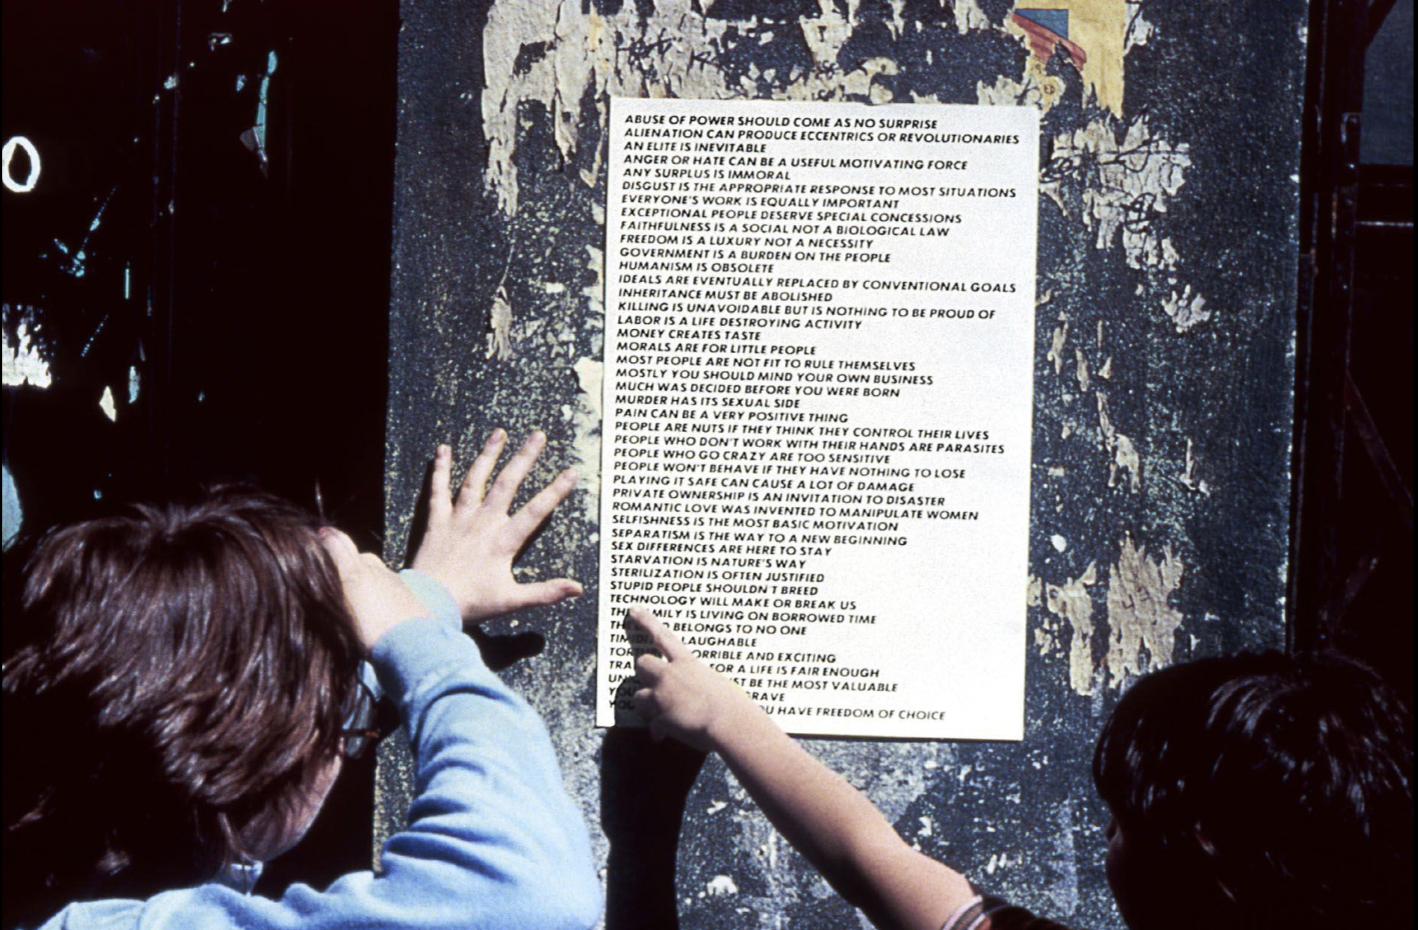 ABUSE OF POWER SHOULD COME AS NO SURPRISE
ALIENATION CAN PRODUCE ECCENTRICS OR REVOLUTIONARIES
AN ELITE IS INEVITABLE
ANGER OR HATE CAN BE A USEFUL MOTIVATING FORCE
ANY SURPLUS IS IMMORAL
DISGUST IS THE APPROPRIATE RESPONSE TO MOST SITUATIONS
EVERYONE'S WORK IS EQUALLY IMPORTANT
EXCEPTIONAL PEOPLE DESERVE SPECIAL CONCESSIONS
FAITHFULNESS IS A SOCIAL NOT A BIOLOGICAL LAW
FREEDOM IS A LUXURY NOT A NECESSITY
GOVERNMENT IS A BURDEN ON THE PEOPLE
HUMANISM IS OBSOLETE
IDEALS ARE EVENTUALLY REPLACED BY CONVENTIONAL GOALS
INHERITANCE MUST BE ABOLISHED
KILLING IS UNAVOIDABLE BUT IS NOTHING TO BE PROUD OF
LABOR IS A LIFE DESTROYING ACTIVITY
MONEY CREATES TASTE
MORALS ARE FOR LITTLE PEOPLE
MOST PEOPLE ARE NOT FIT TO RULE THEMSELVES
MOSTLY YOU SHOULD MIND YOUR OWN BUSINESS
MUCH WAS DECIDED BEFORE YOU WERE BORN
MURDER HAS ITS SEXUAL SIDE
PAIN CAN BE A VERY POSITIVE THING
PEOPLE ARE NUTS IF THEY THINK THEY CONTROL THEIR LIVES
PEOPLE WHO DON'T WORK WITH THEIR HANDS ARE PARASITES
PEOPLE WHO GO CRAZY ARE TOO SENSITIVE
PEOPLE WON'T BEHAVE IF THEY HAVE NOTHING TO LOSE
PLAYING IT SAFE CAN CAUSE A LOT OF DAMAGE
PRIVATE OWNERSHIP IS AN INVITATION TO DISASTER
ROMANTIC LOVE WAS INVENTED TO MANIPULATE WOMEN
SELFISHNESS IS THE MOST BASIC MOTIVATION
SEPARATISM IS THE WAY TO A NEW BEGINNING
SEX DIFFERENCES ARE HERE TO STAY
STARVATION IS NATURE'S WAY
STERILIZATION IS OFTEN JUSTIFIED
STUPID PEOPLE SHOULDN'T BREED
TECHNOLOGY WILL MAKE OR BREAK US
THE FAMILY IS LIVING ON BORROWED TIME
BELONGS TO NO ONE
LAUGHABLE
AND EXCITING
FOR A LIFE IS FAIR ENOUGH
BE THE MOST VALUABLE
HAVE FREEDOM OF CHOICE